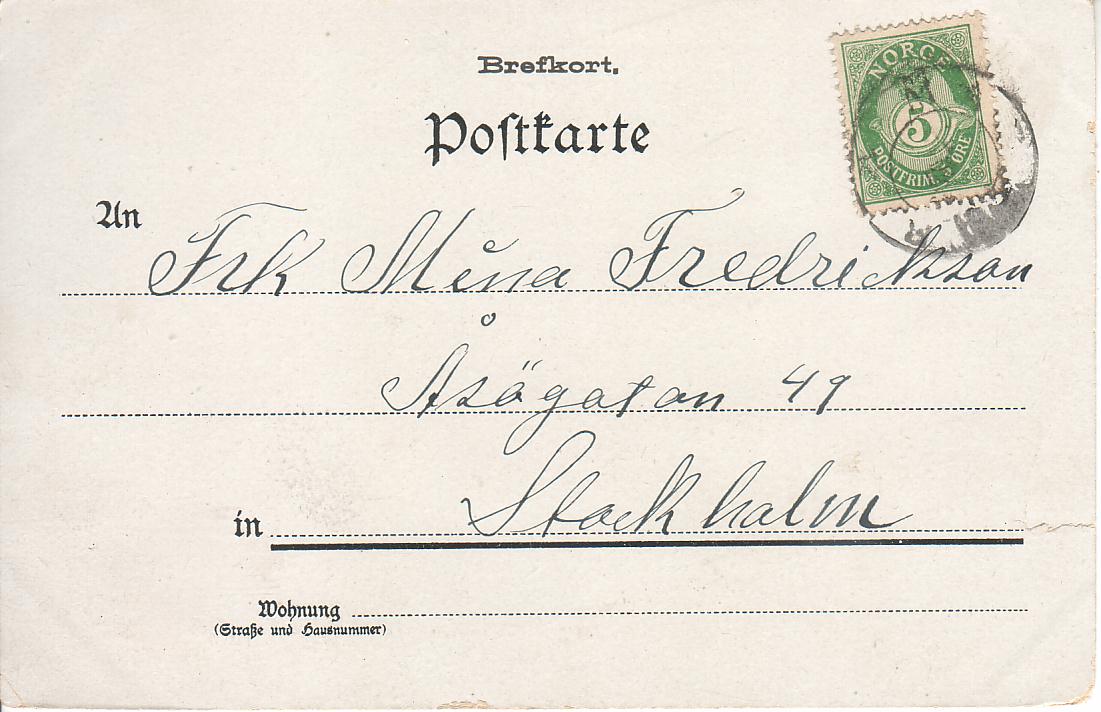 Brefkort.
Postkarte
NORGE
5
POSTFRIM. ØRE
An
Frk Mina Fredrickson
Åsögatan 49
in Stockholm
Wohnung
(Straße und Hausnummer)